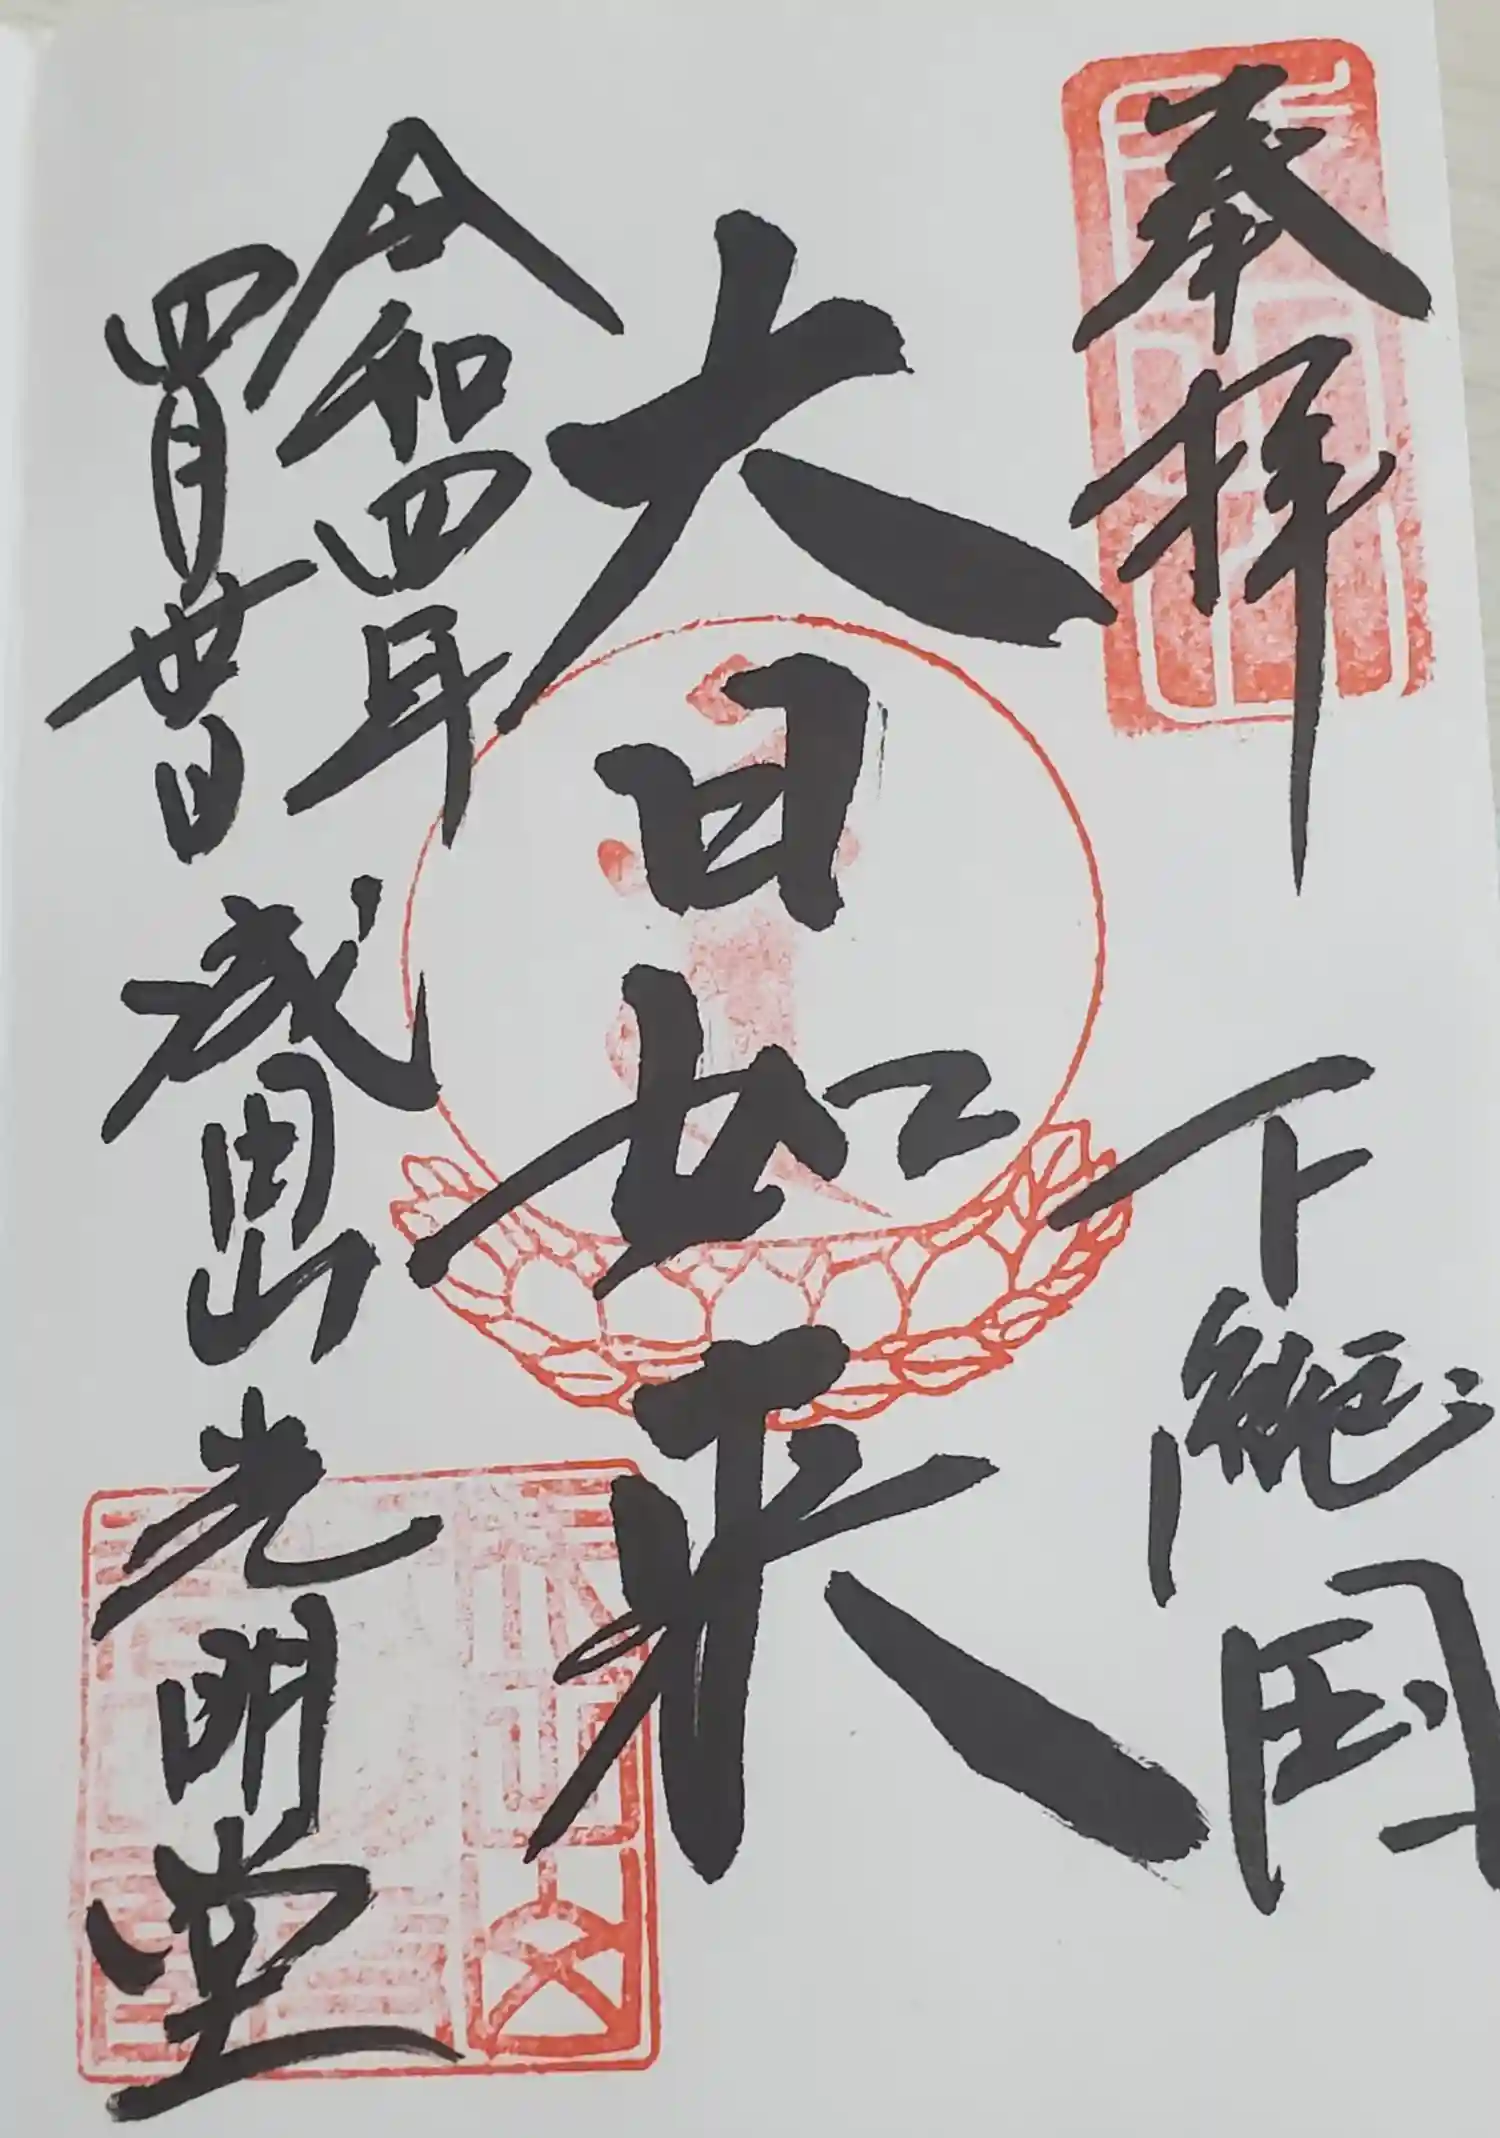 奉拝 下総国
大日如来
令和四年
四月廿日 成田山 光明堂